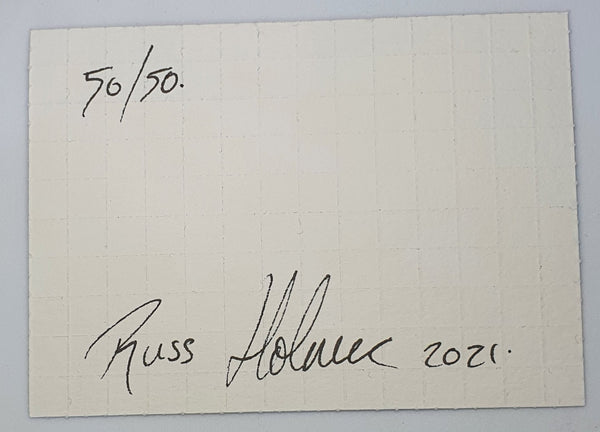 50/50.
Russ Holmes 2021.